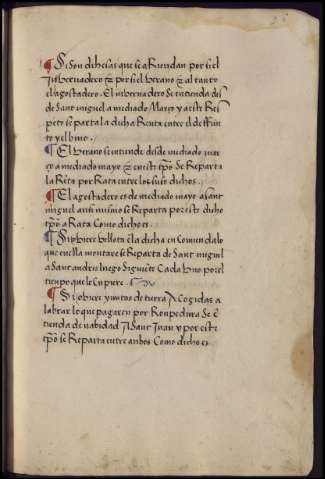 ¶ Si son dehesas que se a Riendan por si el
ynbernadero & por si el berano & al tanto
el agostadero. El inbernadero se entienda des
de Sant miguel a mediado Março y a este Res
peto se parta la dicha Renta entre el deffun
to y el bivo.
¶ El berano se entiende desde mediado mar
ço a mediado mayo & en este tpõ Se Reparta
la Rẽta por Rata entre los suso dichos
¶ El agostadero es de mediado mayo a sant
miguel ansi mismo se Reparta por este dicho
tpõ a Rata Como dicho es
¶ Si oviere bellota ẽ la dicha encomienda lo
que en ella montare se Reparta de Sant miguel
a Sant andres luego Siguiẽte Cada vno por el
tiempo que le Cupiere.
¶ Si oviere yuntas de tierra Acogidas a
labrar lo que pagaren por Ronpedura Se ẽ
tienda de nabidad A Sant Juan y por este
tpõ se Reparta entre anbos Como dicho es